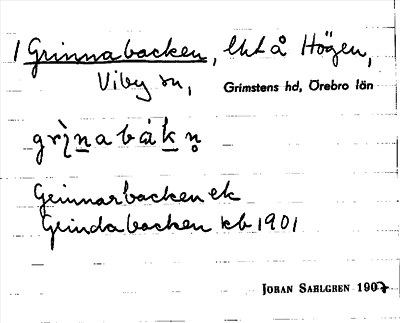 / Grinnabacken, lht å Högen,
Viby sn,
Grimstens hd, Örebro län
grìnabákn̥
Geinnarbacken ek
Geindabacken kb 1901
JORAN SAHLGREN 1907